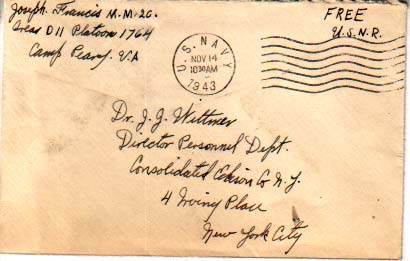 Joseph Francis M.M. 2c.
Area D11 Platoon 1764
Camp Peary. VA
FREE
U.S.N.R.
U.S. NAVY
NOV 14
10 30 AM
1943
Dr. J. J. Wittmer
Director Personnel Dept.
Consolidated Edison Co N.Y.
4 Irving Place
New York City